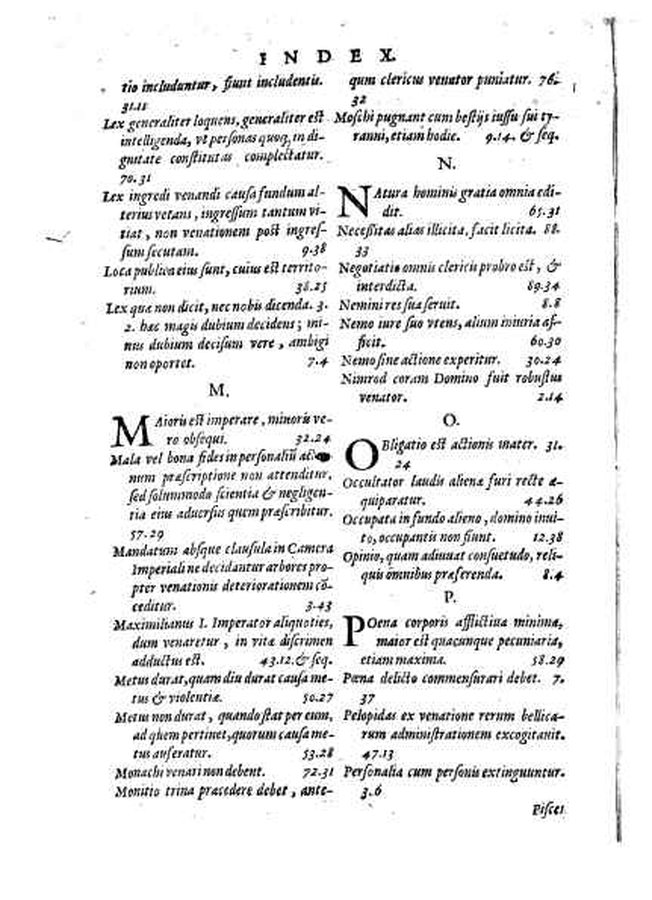 INDEX.
tio includuntur, fiunt includentis.
31.11
Lex generaliter loquens, generaliter est
intelligenda, vt personas quoq; in di-
gnitate constitutas complectatur.
70.31
Lex ingredi venandi causa fundum al-
terius vetans, ingressum tantum vi-
tiat, non venationem post ingres-
sum secutam. 9.38
Loca publica eius sunt, cuius est territo-
rium. 38.25
Lex quæ non dicit, nec nobis dicenda. 3.
2. hæc magis dubium decidens; mi-
nus dubium decisum vere, ambigi
non oportet. 7.4
M.
MAioris est imperare, minoris ve-
ro obsequi. 32.24
Mala vel bona fides in personaliũ
num præscriptione non attenditur,
sed solummodo scientia & negligen-
tia eius aduersus quem præscribitur.
57.29
Mandatum absque clausula in Camera
Imperiali ne decidantur arbores pro-
pter venationis deteriorationem cõ-
ceditur. 3.43
Maximilianus I. Imperator aliquoties,
dum venaretur, in vitæ discrimen
adductus est. 43.12. & seq.
Metus durat, quam diu durat causa me-
tus & violentiæ. 50.27
Metus non durat, quando stat per eum,
ad quem pertinet, quorum causa me-
tus auferatur. 53.28
Monachi venari non debent. 72.31
Monitio trina præcedere debet, ante-
qum clericus venator puniatur. 76.
32
Moschi pugnant cum bestijs iussu sui ty-
ranni, etiam hodie. 9.14. & seq.
N.
NAtura hominis gratia omnia edi-
dit. 65.31
Necessitas alias illicita, facit licita. 88.
33
Negotiatio omnis clericis probro est, &
interdicta. 89.34
Nemini res sua seruit. 8.8
Nemo iure suo vtens, alium iniuria af-
ficit. 60.30
Nemo sine actione experitur. 30.24
Nimrod coram Domino fuit robustus
venator. 2.14
O.
OBligatio est actionis mater. 31.
24
Occultator laudis alienæ furi recte æ-
quiparatur. 44.26
Occupata in fundo alieno, domino inui-
to, occupantis non fiunt. 12.38
Opinio, quam adiuuat consuetudo, reli-
quis omnibus præferenda. 8.4
P.
POena corporis afflictiua minima,
maior est quacunque pecuniaria,
etiam maxima. 58.29
Pœna delicto commensurari debet. 7.
37
Pelopidas ex venatione rerum bellica-
rum administrationem excogitauit.
47.13
Personalia cum personis extinguuntur.
3.6
Pisces